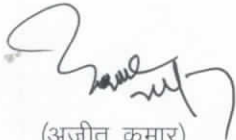 (अजीत कुमार)